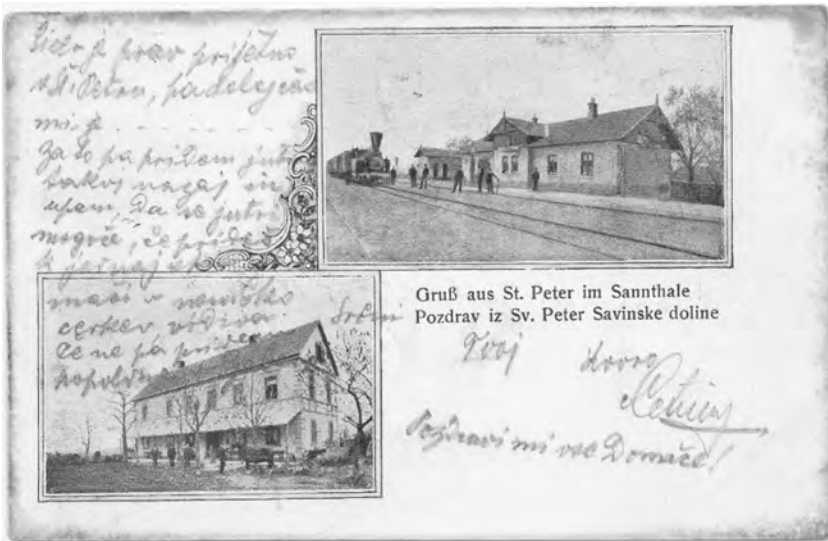 je prav prijetno
v Št. Petru,
mi je . . . . . .
Za to pa pridem jutri
takoj nazaj in
upam, da se jutri
mogoče, če pridem
k
maši v
cerkev vidiva.
Če ne pa pridem
popoldne
Srčni
Gruß aus St. Peter im Sannthale
Pozdrav iz Sv. Peter Savinske doline
Tvoj
Pozdravi mi vse Domače!